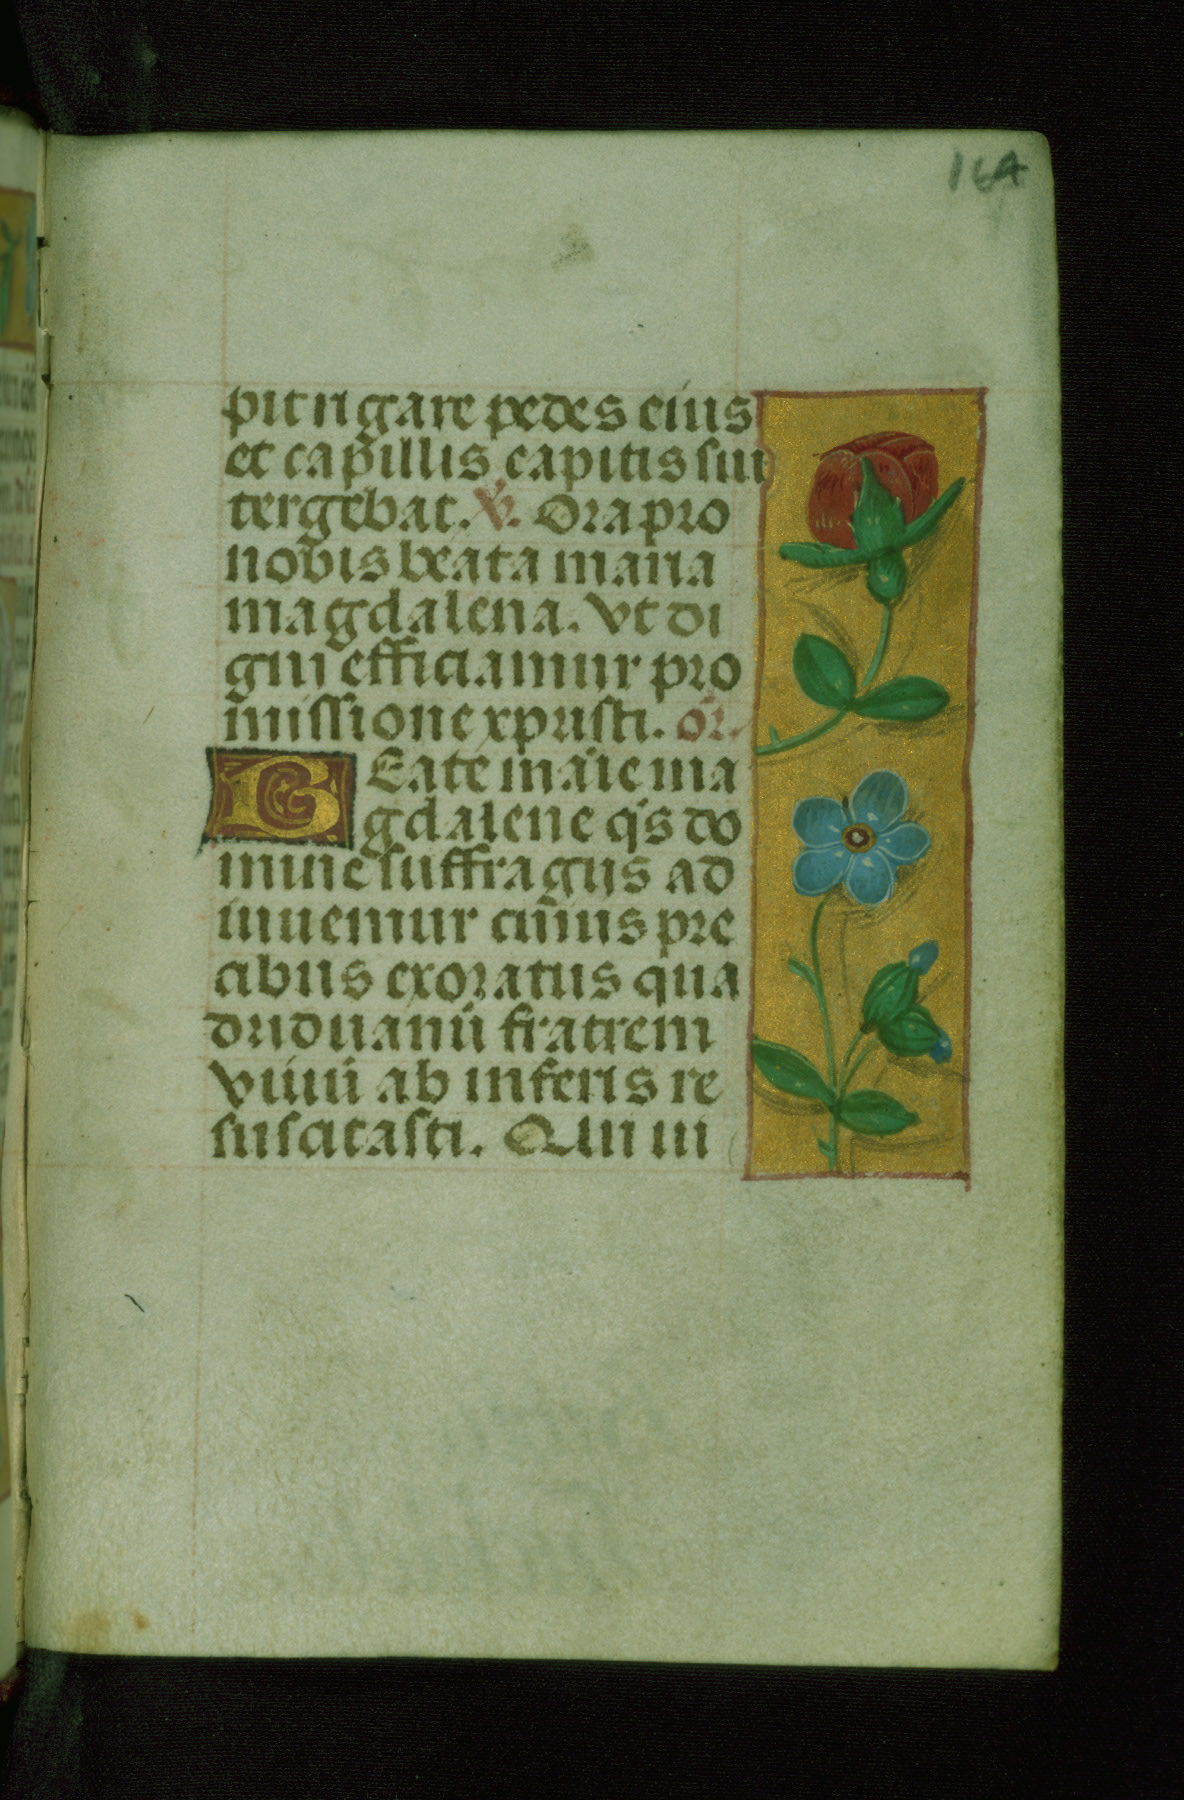 164
pit rigare pedes eius
et capillis capitis sui
tergebat. V̄. Ora pro
nobis beata maria
magdalena. Vt di
gni efficiamur pro
missione xpristi. or̄.
BEate marie ma
gdalene qs do
mine suffragijs ad
iuuemur cuius pre
cibus exoratus qua
driduanū fratrem
viuū ab inferis re
suscitasti. Qui ui